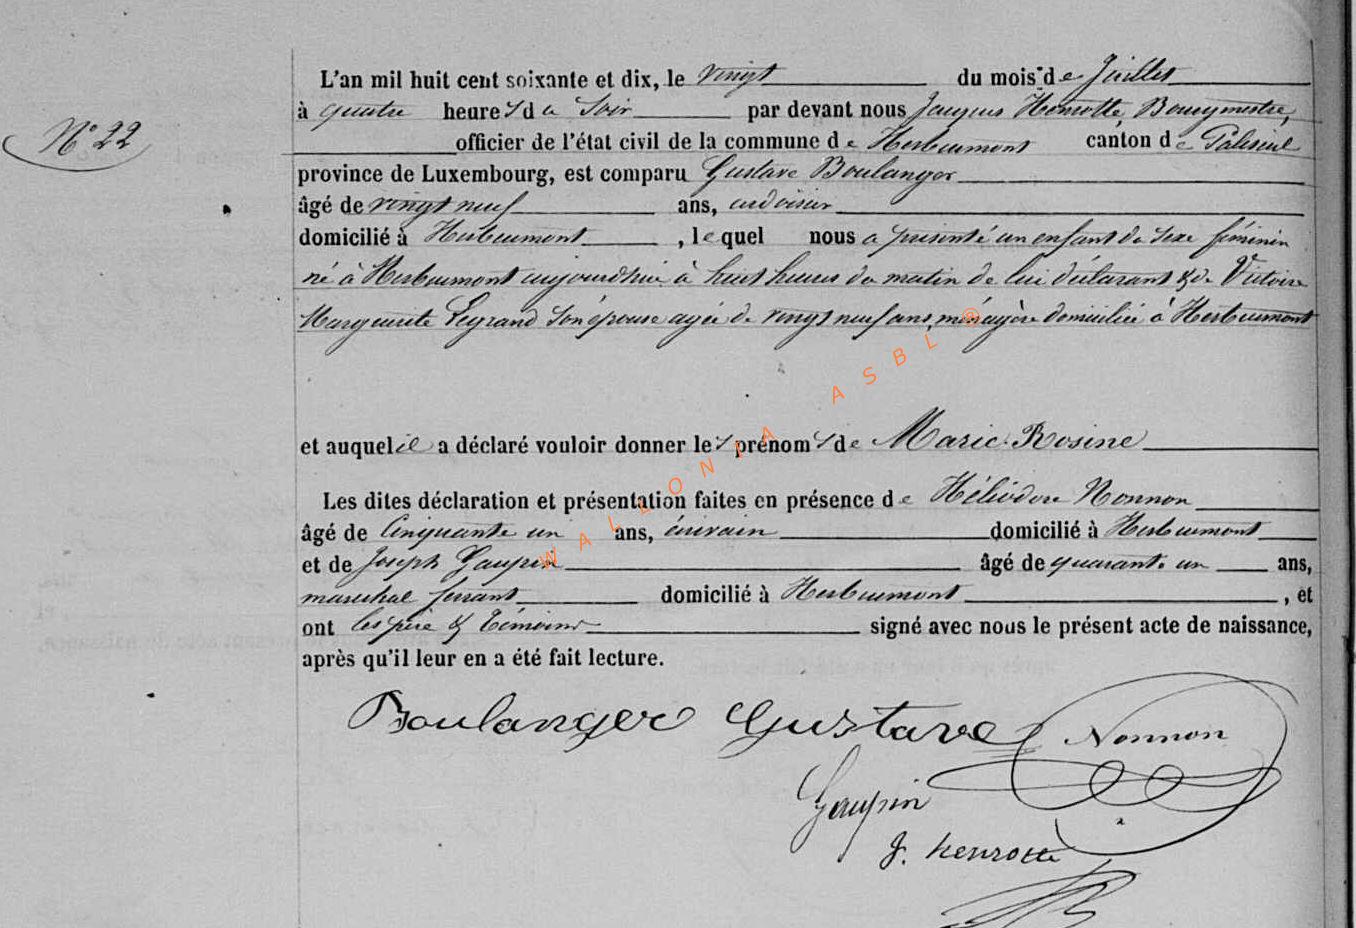 L'an mil huit cent soixante et dix, le vingt du mois de Juillet
à quatre heures du Soir par devant nous Jacques Henrotte, Bourgmestre,
N° 22
officier de l'état civil de la commune de Herbeumont canton de Paliseul
province de Luxembourg, est comparu Gustave Boulanger
âgé de vingt neuf ans, ardoisier
domicilié à Herbeumont, lequel nous a présenté un enfant du sexe féminin
né à Herbeumont aujourdhui à huit heures du matin de lui déclarant & de Victoire
Marguerite Legrand Son épouse agée de vingt neuf ans, ménagère domiciliée à Herbeumont
et auquel il a déclaré vouloir donner les prénoms de Marie Rosine
Les dites déclaration et présentation faites en présence de Héliodore Nonnon
âgé de Cinquante un ans, écrivain domicilié à Herbeumont
et de Joseph Gaupin âgé de quarante un ans,
maréchal ferrant domicilié à Herbeumont, et
ont les père & Témoins signé avec nous le présent acte de naissance,
après qu'il leur en a été fait lecture.
Boulanger Gustave Nonnon
Gaupin
J. henrotte
WALLONIA ASBL ®